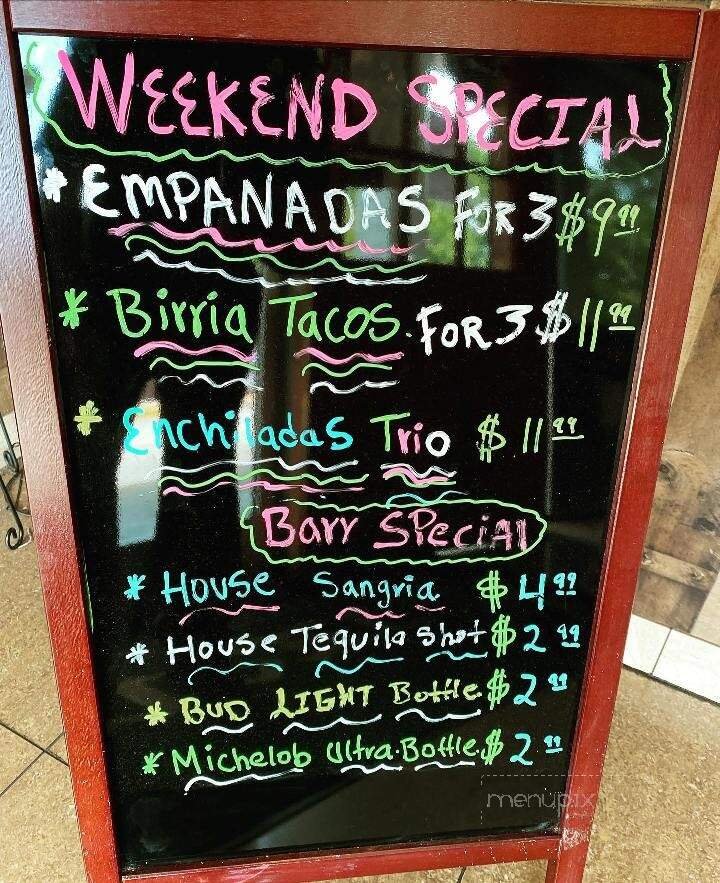 WEEKEND SPECIAL
* EMPANADAS FOR 3 $9.99
* Birria Tacos. FOR 3 $11.99
* Enchiladas Trio $11.99
Barr SPeciAl
* House Sangria $4.99
* House Tequila Shot $2.99
* BUD LIGHT Bottle $2.99
* Michelob Ultra. Bottle. $2.99
menupix